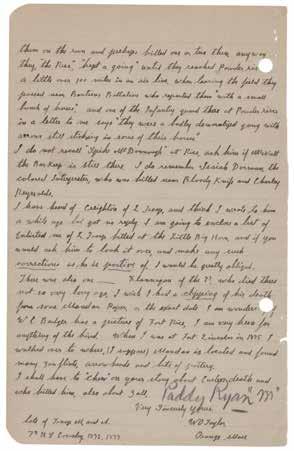 them on the run and perhaps killed one or two then, anyway
they, "the Rees", "kept a going" until they reached Powder river
a little over 100 miles in an air line, when leaving the field they
passed near Benteens Battalion who reported them "with a small
bunch of horses" and one of the Infantry guard there at Powder river
in a letter to me says "they were a badly demoralized gang with
arrows still sticking in some of their horses"
I do not recall "Spike McDonough" at Rice, ask him if McNall
the Barkeep is still there I do remember Isaiah Dorman the
colored Interpreter, who was killed near Bloody Knife and Charley
Reynolds.
I have heard of Creighton of K Troop, and think I wrote to him
a while ago but got no reply. I am going to enclose a list of
Enlisted men of K Troop killed at the Little Big Horn, and if you
would ask him to look it over, and make any such
corrections as he is positive of I would be greatly obliged.
There was also one Flannagan of the 7th who died there
not so very long ago, I wish I had a clipping of his death
from some Mandan Paper, or the exact date I am wondering if
W C Badger has a picture of Fort Rice, I am very keen for
anything of the kind. When I was at Fort Lincoln in 1875 I
walked over to where, (I suppose) Mandan is located and found
many gun flints, arrow heads and bits of pottery.
I shall have to "chew" on your story about Custers death and
who killed him, also about Gall. Paddy Ryan "M"
Very Sincerely Yours.
WO Taylor
Orange Mass
late of Troop M and A
7th U S Cavalry 1872, 1877